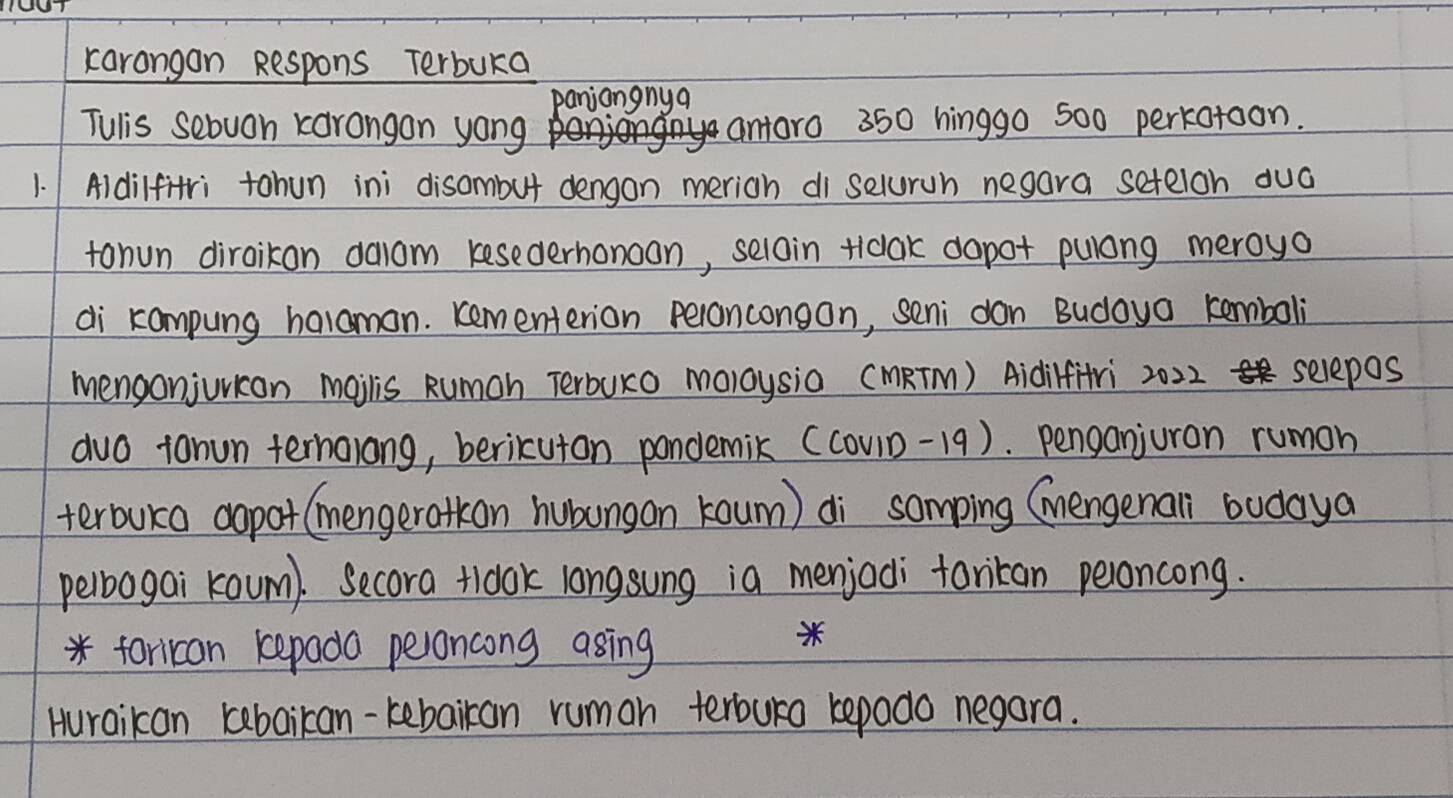 Karangan Respons Terbuka
panjangnya
Tulis sebuah karangan yang panjangnya antara 350 hingga 500 perkataan.
1. Aidilfitri tahun ini disambut dengan meriah di seluruh negara setelah dua
tahun diraikan dalam kesederhanaan, selain tidak dapat pulang meraya
di kampung halaman. Kementerian Pelancongan, Seni dan Budaya kembali
menganjurkan Majlis Rumah Terbuka Malaysia (MRTM) Aidilfitri 2022 selepas
dua tahun terhalang, berikutan pandemik (COVID-19). Penganjuran rumah
terbuka dapat (mengeratkan hubungan kaum) di samping (mengenali budaya
pelbagai kaum). Secara tidak langsung ia menjadi tarikan pelancong.
* tarikan kepada pelancong asing *
Huraikan kebaikan-kebaikan rumah terbuka kepada negara.